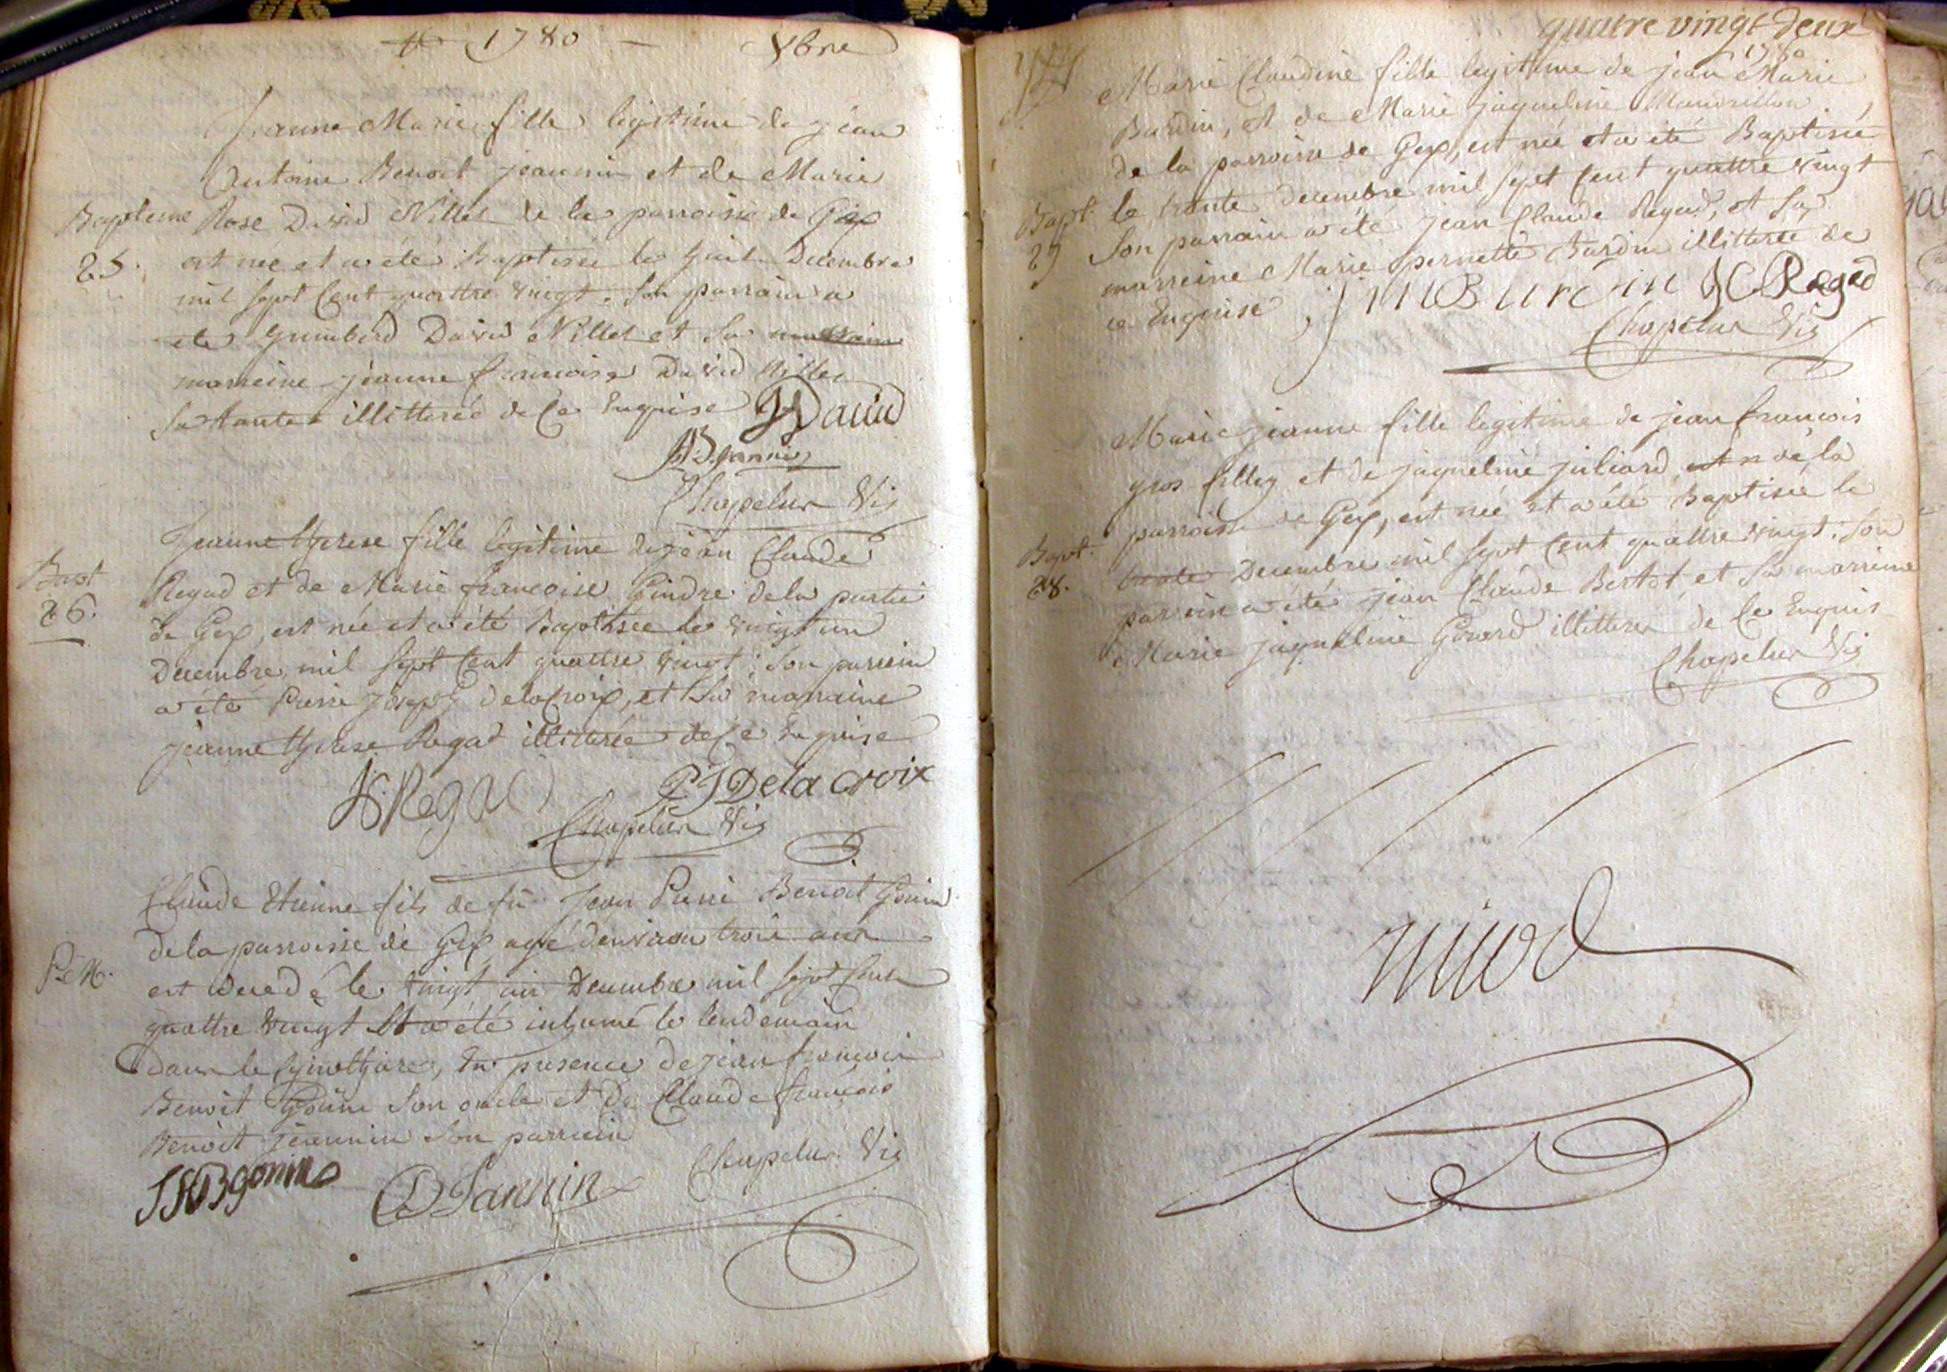 1780 Xbre
Jeanne Marie fille legitime de jean
Antoine Benoit jeannin et de Marie
Bapteme Rose David Nillet de la parroisse de Gex
25. est née et a été Baptisée le huit Decembre
mil sept Cent quattre vingt. Son parrain a
été David Nillet et Sa
marreine jeanne francoise David Nillet
Sa tante illitterée de Ce Enquise David
Chapelur Vic
Jeanne therese fille legitime de jean Claude
Bapt Regad et de Marie francoise Gindre de la partie
26. de Gex, est née et a été Baptisée le vingt un
Decembre mil sept Cent quattre vingt : Son parrein
a été Pierre Joseph delaCroix, et Sa marraine
jeanne therese Regad illiterée de Ce Enquise
Regad P J Delacroix
Chapelur Vic
Claude Etienne fils de fü Jean Pierre Benoit Gonin
de la parroisse de Gex agé denviron trois ans
est decedé le vingt un Decembre mil sept Cent
quattre vingt Et a été inhumé le lendemain
dans le Symethiere, En presence de jean francois
Benoit Gonin Son oncle et De Claude françois
Benoit jeannin Son parrein
JFBgonin Jannin Chapelur Vic
quatre vingt deux
1780
Marie Claudine fille legitime de jean Marie
Burdin, et de Marie jaqueline Mandrillon
de la parroisse de Gex, est née et a été Baptisée
Bapt. le trente decembre mil sept Cent quattre vingt
27 Son parrain a été jean Claude Regad, et Sa
marreine Marie pernette Burdin illitterée de
ce Enquise, jmBurdin JC Regad
Chapelur Vic
Marie jeanne fille legitime de jean francois
gros filley et de jaqueline juliard de la
parroisse de Gex, est née et a été Baptisée le
Bapt. trente Decembre mil sept Cent quattre vingt : Son
28. parrein a été jean Claude Bertet, et Sa marreine
Marie jaqueline Girard illitteres de Ce Enquis
Chapelur Vic
nicod